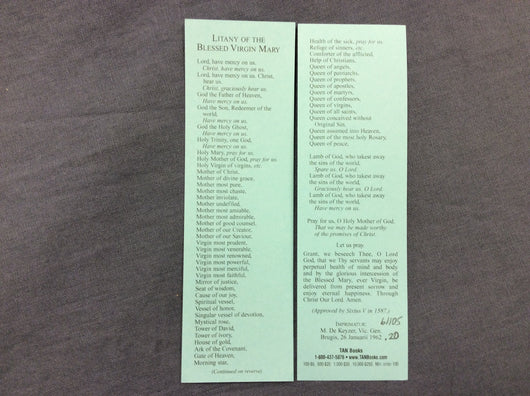 LITANY OF THE
BLESSED VIRGIN MARY
Lord, have mercy on us.
Christ, have mercy on us.
Lord, have mercy on us. Christ,
hear us.
Christ, graciously hear us.
God the Father of Heaven,
Have mercy on us.
God the Son, Redeemer of the
world,
Have mercy on us.
God the Holy Ghost,
Have mercy on us.
Holy Trinity, one God,
Have mercy on us.
Holy Mary, pray for us.
Holy Mother of God, pray for us.
Holy Virgin of virgins, etc.
Mother of Christ,
Mother of divine grace,
Mother most pure,
Mother most chaste,
Mother inviolate,
Mother undefiled,
Mother most amiable,
Mother most admirable,
Mother of good counsel,
Mother of our Creator,
Mother of our Saviour,
Virgin most prudent,
Virgin most venerable,
Virgin most renowned,
Virgin most powerful,
Virgin most merciful,
Virgin most faithful,
Mirror of justice,
Seat of wisdom,
Cause of our joy,
Spiritual vessel,
Vessel of honor,
Singular vessel of devotion,
Mystical rose,
Tower of David,
Tower of ivory,
House of gold,
Ark of the Covenant,
Gate of Heaven,
Morning star,
(Continued on reverse)
Health of the sick, pray for us.
Refuge of sinners, etc.
Comforter of the afflicted,
Help of Christians,
Queen of angels,
Queen of patriarchs,
Queen of prophets,
Queen of apostles,
Queen of martyrs,
Queen of confessors,
Queen of virgins,
Queen of all saints,
Queen conceived without
Original Sin,
Queen assumed into Heaven,
Queen of the most holy Rosary,
Queen of peace,
Lamb of God, who takest away
the sins of the world,
Spare us, O Lord.
Lamb of God, who takest away
the sins of the world,
Graciously hear us, O Lord.
Lamb of God, who takest away
the sins of the world,
Have mercy on us.
Pray for us, O Holy Mother of God,
That we may be made worthy
of the promises of Christ.
Let us pray
Grant, we beseech Thee, O Lord
God, that we Thy servants may enjoy
perpetual health of mind and body
and by the glorious intercession of
the Blessed Mary, ever Virgin, be
delivered from present sorrow and
enjoy eternal happiness. Through
Christ Our Lord. Amen.
(Approved by Sixtus V in 1587.)
IMPRIMATUR:
M. De Keyzer, Vic. Gen.
Brugis, 26 Januarii 1962
61105
.20
TAN Books
1-800-437-5876 • www.TANBooks.com